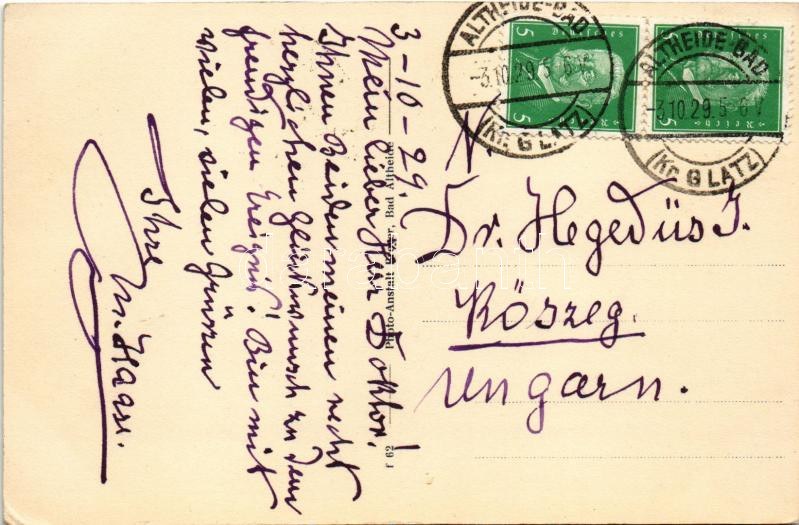 3-10-29
Mein lieber Herr Doktor!
Ihnen Beiden meinen recht
herzlichen Glückwunsch zu dem
freudigen Ereignis! Bin mit
vielen, vielen Grüssen
Ihre
M. Haase.
Photo-Anstalt Bad Altheide
F 62
5 Deutsches Reich 5
5 Deutsches Reich 5
ALTHEIDE-BAD
-3.10.29.5-6
(Kr. GLATZ)
ALTHEIDE-BAD
-3.10.29.5-6
(Kr. GLATZ)
Dr. Hegedüs J.
Kőszeg.
Ungarn.